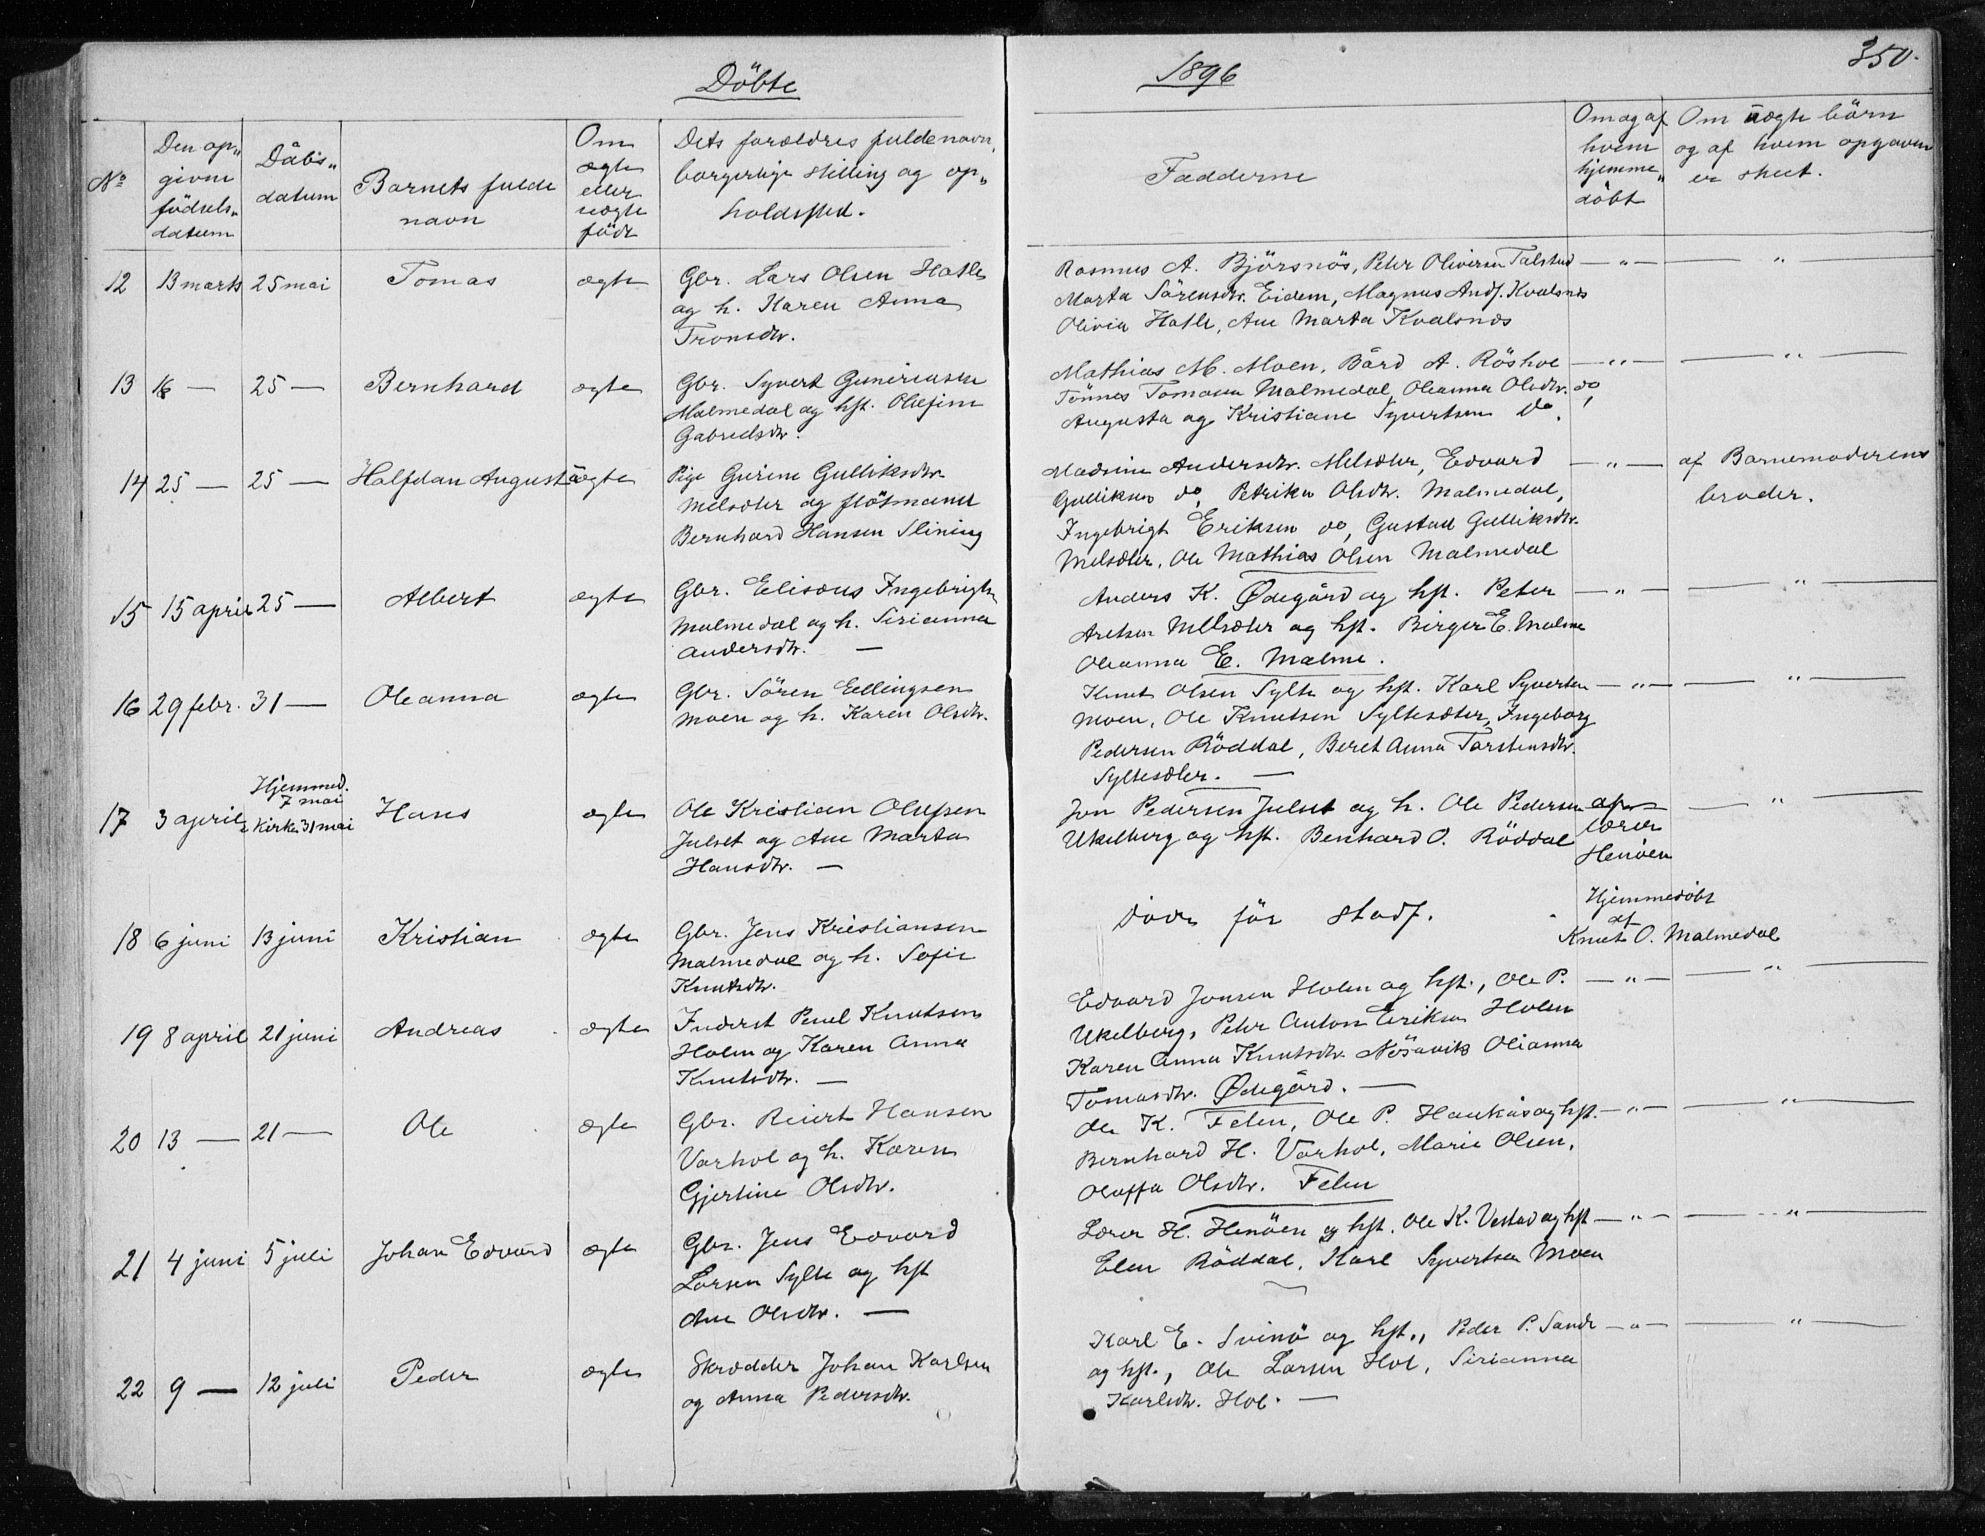 Döbte
1896
350.
No
Den op„
given
födsels„
datum
Dåbs„
datum
Barnets fulde
navn
Om
ægte
eller
uægte
född
Dets forældres fulde navn,
borgerlige stilling og op„
holdssted.
Fadderne
Om og af
hvem
hjemme„
döbt
Om uægte börn
og af hvem opgaven
er skeet.
12 13 marts 25 mai Tomas ægte Gbr. Lars Olsen Hatle
og h. Karen Anna
Tronsdtr.
Rasmus A. Björsnös, Peter Oliversen Talstad — „ — — „
Marta Sörensdtr. Eidem, Magnus Andr. Kvalsnes
Olivia Hatle, Ane Marta Kvalsnes
13 16 — 25 — Bernhard ægte Gbr. Syvert Guneriusen
Malmedal og hst. Olefine
Gabrielsdtr.
Mathias M. Moen, Bård A. Röshol — „ — — „ —
Tönnes Tomasen Malmedal, Oleanna Olsdtr. do,
Augusta og Kristiane Syvertsen do.
14 25 — 25 — Halfdan August uægte Pige Gurine Gulliksdtr.
Melsæter og flötmand
Bernhard Hansen Slining
Madsine Andersdtr. Melsæter, Edvard — „ — af Barnemoderens
Gulliksen do, Petrika Olsdtr. Malmedal, broder.
Ingebrigt Eriksen do, Gustad Gulliksdtr.
Melsæter, Ole Mathias Olsen Malmedal
15 15 april 25 — Albert ægte Gbr. Elisæus Ingebrigts.
Malmedal og h. Sirianna
Andersdtr. —
Anders K. Ødegård og hst. Peter — „ — — „ —
Aretsen Melsæter og hst. Birger E. Malme
Oleanna E. Malme.
16 29 febr. 31 — Oleanna ægte Gbr. Sören Ellingsen
Moen og h. Karen Olsdtr.
Knut Olsen Sylte og hst. Karl Syvertsen — „ — — „ —
Moen, Ole Knutsen Syltesæter, Ingeborg
Pedersen Röddal, Beret Anna Torstensdtr.
Syltesæter. —
17 3 april Hjemmed.
7 mai
i Kirke 31 mai Hans ægte Ole Kristian Olufsen
Julset og Ane Marta
Hansdtr. —
Jon Pedersen Julset og h. Ole Pedersen af — „ —
Ukelberg og hst. Bernhard O. Röddal lærer
Henöen
18 6 juni 13 juni Kristian ægte Gbr. Jens Kristiansen
Malmedal og h. Sofie
Knutsdtr.
Döde för stadf.
Hjemmedöbt
af
Knut O. Malmedal
19 8 april 21 juni Andreas ægte Inderst Paul Knutsen
Holm og Karen Anna
Knutsdtr. —
Edvard Jonsen Holm og hst., Ole P. — „ — — „ —
Ukelberg, Peter Anton Eriksen Holm
Karen Anna Knutsdtr. Nösavik Olianna
Tomasdtr. Ødegård. —
20 13 — 21 — Ole ægte Gbr. Reiert Hansen
Varhol og h. Karen
Gjertine Olsdtr.
Ole K. Felen, Ole P. Haukås og hst — „ — — „ —
Bernhard H. Varhol, Marie Olsen,
Oluffa Olsdtr. Felen
21 4 juni 5 juli Johan Edvard ægte Gbr. Jens Edvard
Larsen Sylte og hst
Ane Olsdtr. —
Lærer H. Henöen og hst. Ole K. Vestad og hst — „ — — „ —
Elen Röddal, Karl Syvertsen Moen
22 9 — 12 juli Peder ægte Skrædder Johan Karlsen
og Anna Pedersdtr.
Karl E. Svinö og hst., Peder P. Sande — „ — — „ —
og hst., Ole Larsen Hol, Sirianna
Karlsdtr. Hol. —